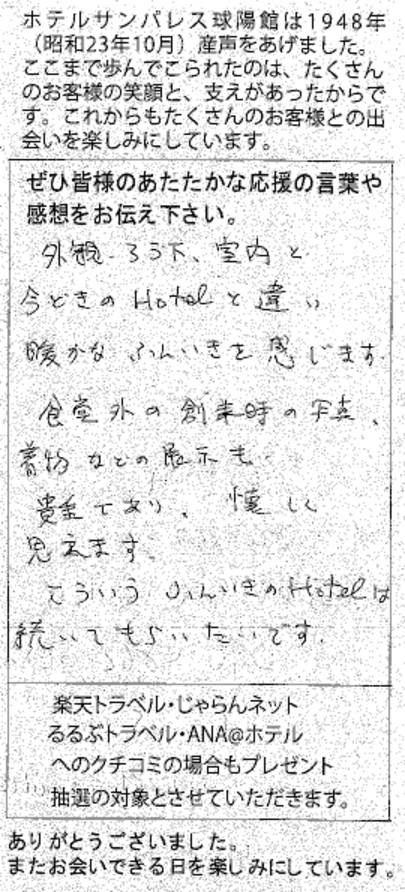 ホテルサンパレス球陽館は1948年
（昭和23年10月）産声をあげました。
ここまで歩んでこられたのは、たくさん
のお客様の笑顔と、支えがあったからで
す。これからもたくさんのお客様との出
会いを楽しみにしています。
ぜひ皆様のあたたかな応援の言葉や
感想をお伝え下さい。
外観、ろう下、室内と
今どきのHotelと違い
暖かな ふんいきを感じます
食堂外の創業時の写真、
着物などの展示も
貴重であり、懐しく
思えます。
こういう ふんいきのHotelは
続いてもらいたいです。
楽天トラベル・じゃらんネット
るるぶトラベル・ANA@ホテル
へのクチコミの場合もプレゼント
抽選の対象とさせていただきます。
ありがとうございました。
またお会いできる日を楽しみにしています。